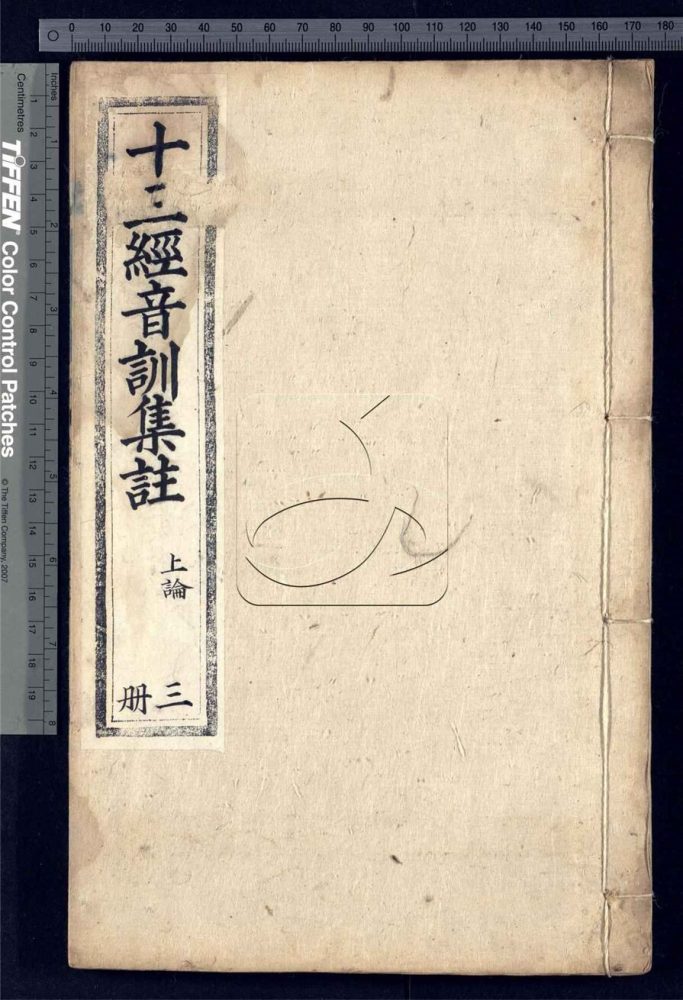 十三經音訓集註
上論
三册
0 10 20 30 40 50 60 70 80 90 100 110 120 130 140 150 160 170 180
Inches
1 2 3 4 5 6 7 8
Centimetres
1 2 3 4 5 6 7 8 9 10 11 12 13 14 15 16 17 18 19
TIFFEN® Color Control Patches
© The Tiffen Company, 2007